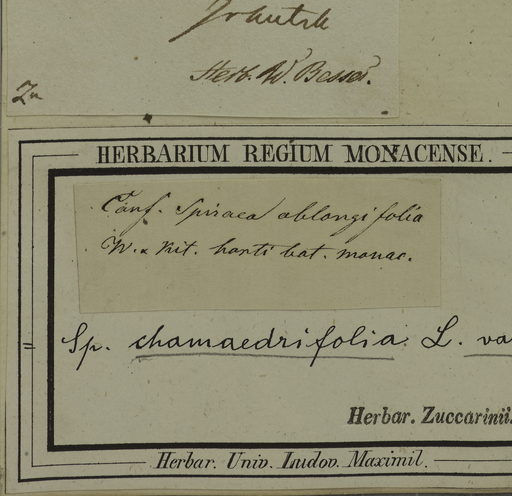 Irkutzk
Herb. W. Besser.
Zu
HERBARIUM REGIUM MONACENSE.
Conf. Spiraea oblongifolia
W. & Kit. horti bot. monac.
= Sp. chamaedrifolia. L. va
Herbar. Zuccarinii.
Herbar. Univ. Ludov. Maximil.